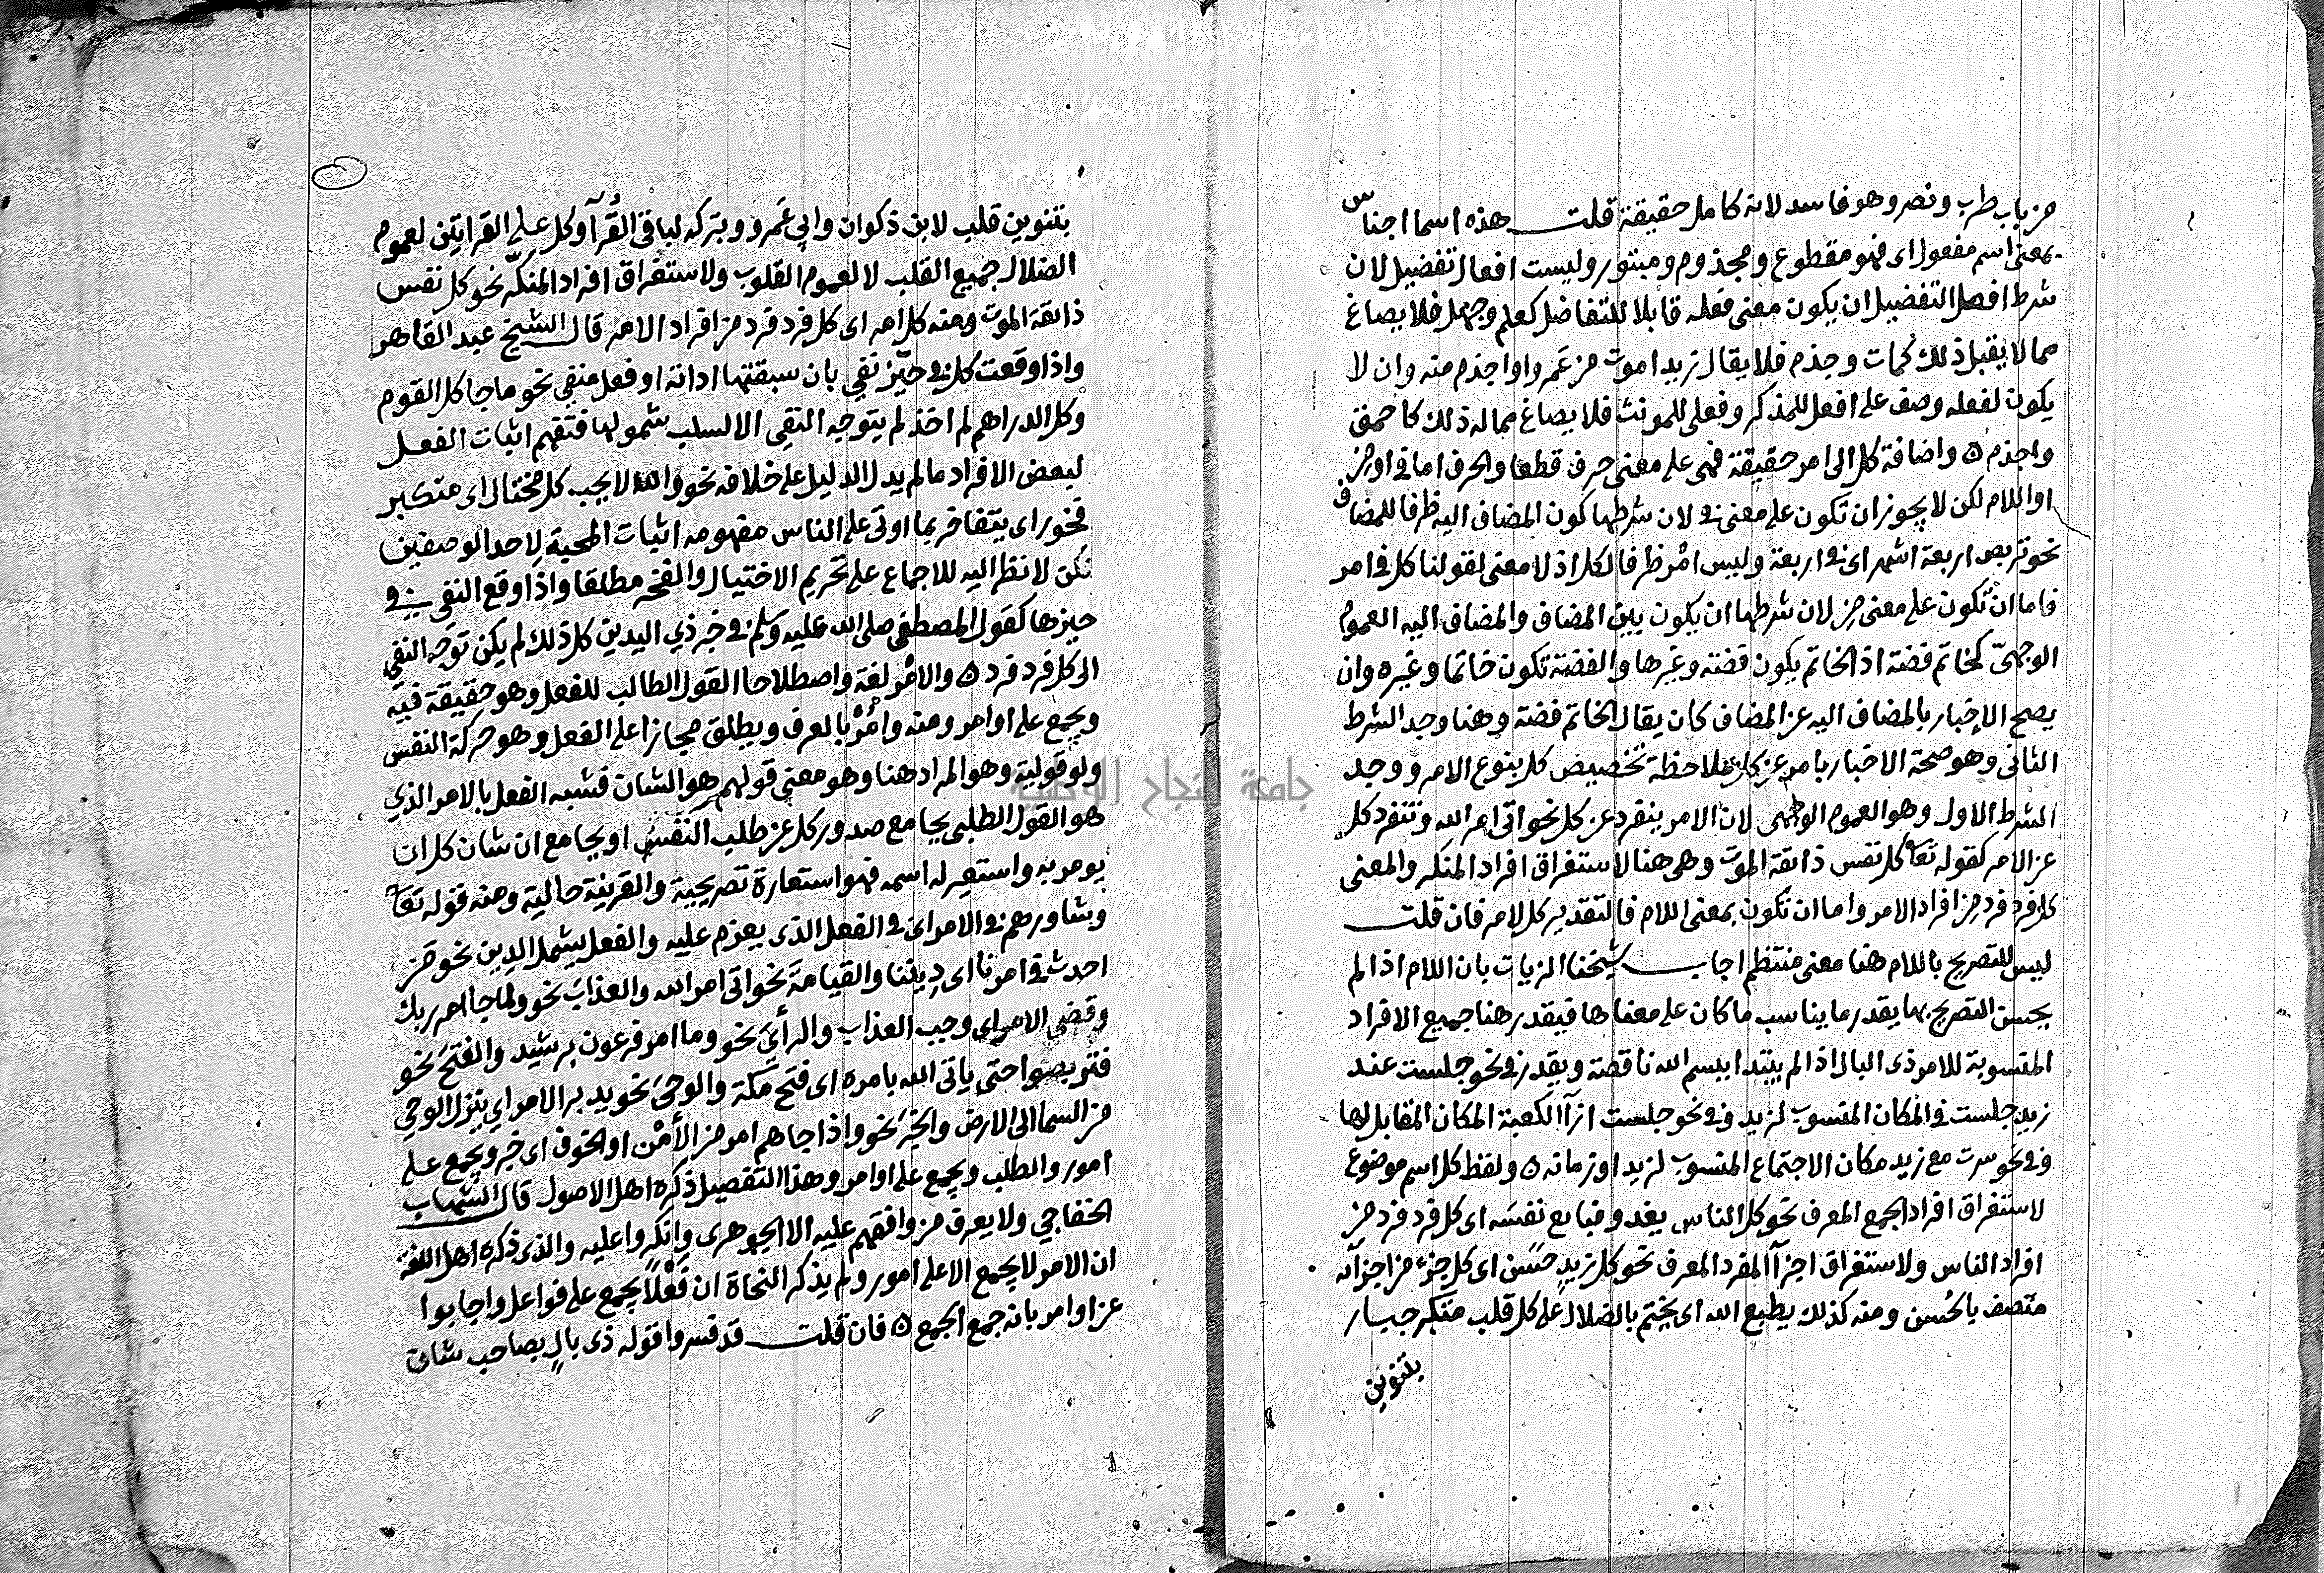 من باب طرب ونصر وهو فاسد لانه كامل حقيقة قلت هذه اسما اجناس
بمعنى اسم مفعول اى فهو مقطوع ومجذوم ومبتور وليست افعال تفضيل لان
شرط افعل التفضيل ان يكون معنى فعله قابلا للتفاضل كعلم وجهل فلا يصاغ
مما لا يقبل ذلك كمات وجذم فلا يقال زيد اموت من عَمرو او اجذم منه وان لا
يكون لفعله وصف على افعل للمذكر وفعلى للمونث فلا يصاغ مما له ذلك كاحمق
واجذم ه واضافة كل الى امر حقيقة فهى على معنى حرف قطعا والحرف اما فى او من
او اللام لكن لا يجوز ان تكون على معنى فى لان شرطها كون المضاف اليه ظرفا للمضاف
نحو تربص اربعة اشهر اى فى اربعة وليس امْر ظرفا لكل اذ لا معنى لقولنا كل فى امر
فاما ان تكون على معنى مِن لان شرطها ان يكون بين المضاف والمضاف اليه العموم
الوجهىّ كخاتم فضة اذ الخاتم يكون فضة وغيرها والفضة تكون خاتما وغيره وان
يصح الاخبار بالمضاف اليه عن المضاف كان يقال الخاتم فضة وهنا وجد الشرط
الثانى وهو صحة الاخبار بامر عن كل بملاحظة تخصيص كل بنوع الامر ووجد
الشرط الاول وهو العموم الوجهى لان الامر ينفرد عن كل نحو اتى امر الله وتنفرد كل
عن الامر كقوله تعا كل نفس ذائقة الموت وهى هنا لاستغراق افراد المنكر والمعنى
كل فرد فرد مِن افراد الامر واما ان تكون بمعنى اللام فالتقدير كل لامر فان قلت
ليس للتصريح باللام هنا معنى منتظم اجاب شيخنا الزيات بان اللام اذا لم
يحسن التصريح بها يقدر ما يناسب ما كان على معناها فيقدر هنا جميع الافراد
المنسوبة للامر ذى البال اذا لم يبتدا ببسم الله ناقصة ويقدر فى نحو جلست عند
زيد جلست فى المكان المنسوب لزيد وفى نحو جلست ازآ الكعبة المكان المقابل لها
وفى نحو سرت مع زيد مكان الاجتماع المنسوب لزيد او زمانه ه ولفظ كل اسم موضوع
لاستغراق افراد الجمع المعرف نحو كل الناس يغدو فبايع نفسَه اى كل فرد فرد من
افراد الناس ولاستغراق اجزآ المفرد المعرف نحو كل زيدٍ حَسَن اى كل جزء من اجزآئه
متصف بالحُسن ومنه كذلك يطبع الله اى يختم بالضلال على كل قلب متكبر جبار
بتنوين
بتنوين قلب لابن ذكوان وابى عَمرو وبتركه لباقى القُرّآ وكل على القرايتين لعموم
الضلال جميع القلب لا لعموم القلوب ولاستغراق افراد المنكّر نحو كل نفس
ذائقة الموت ومنه كل امر اى كل فرد فرد من افراد الامر قال الشيخ عبد القاهر
واذا وقعت كل فى حيّز نفى بان سبقتها اداته او فعل منفى نحو ما جا كل القوم
وكل الدراهم لم اخذ لم يتوجه النفى الا لسلب شمولها فتفهم اثبات الفعل
لبعض الافراد ما لم يدل الدليل على خلافه نحو والله لا يحب كل مختال اى متكبر
فخور اى يتفاخر بما اوتى على الناس مفهومه اثبات المحبة لاحد الوصفين
لكن لا نظر اليه للاجماع على تحريم الاختيال والفخر مطلقا واذا وقع النفى فى
حيزها كقول المصطفى صلى الله عليه وسلم فى خبر ذي اليدين كل ذلك لم يكن توجه النفى
الى كل فرد فرد ه والامْر لغة واصطلاحا القول الطالب للفعل وهو حقيقة فيه
ويجمع على اوامر ومنه وأمُرْ بالعرف ويطلق مجازا على الفعل وهو حركة النفس
ولو قولية وهو المراد هنا وهو معنى قولهم هو الشان فشبه الفعل بالامر الذي
هو القول الطلبى بجامع صدور كل عن طلب النفس او بجامع ان شان كل ان
يومر به واستعير له اسمه فهو استعارة تصريحية والقرينة حالية ومنه قوله تعا
وشاورهم فى الامر اى فى الفعل الذى يعزم عليه والفعل يشمل الدين نحو مَن
احدث فى امرنا اى دِيننا والقيامةَ نحو اتى امر الله والعذابَ نحو ولما جا امر ربك
وقضى الامر اى وجب العذاب والرأىَ نحو وما امر فرعون برشيد والفتحَ نحو
فتربصوا حتى ياتى الله بامره اى فتح مكة والوحىَ نحو يدبر الامر اي ينزل الوحي
من السما الى الارض والخبَر نحو واذا جاهم امر من الأمْن او الخوف اى خبر ويجمع على
امور والطلب ويجمع على اوامر وهذا التفصيل ذكره اهل الاصول قال الشهاب
الخفاجي ولا يعرف من وافقهم عليه الا الجوهرى وانكروا عليه والذى ذكره اهل اللغة
ان الامر لا يجمع الا على امور ولم يذكر النحاة ان فَعْلًا يجمع على فواعل واجابوا
عن اوامر بانه جمع الجمع ه فان قلت قد فسروا قوله ذى بالٍ بصاحب شان
جامعة النجاح الوطنية